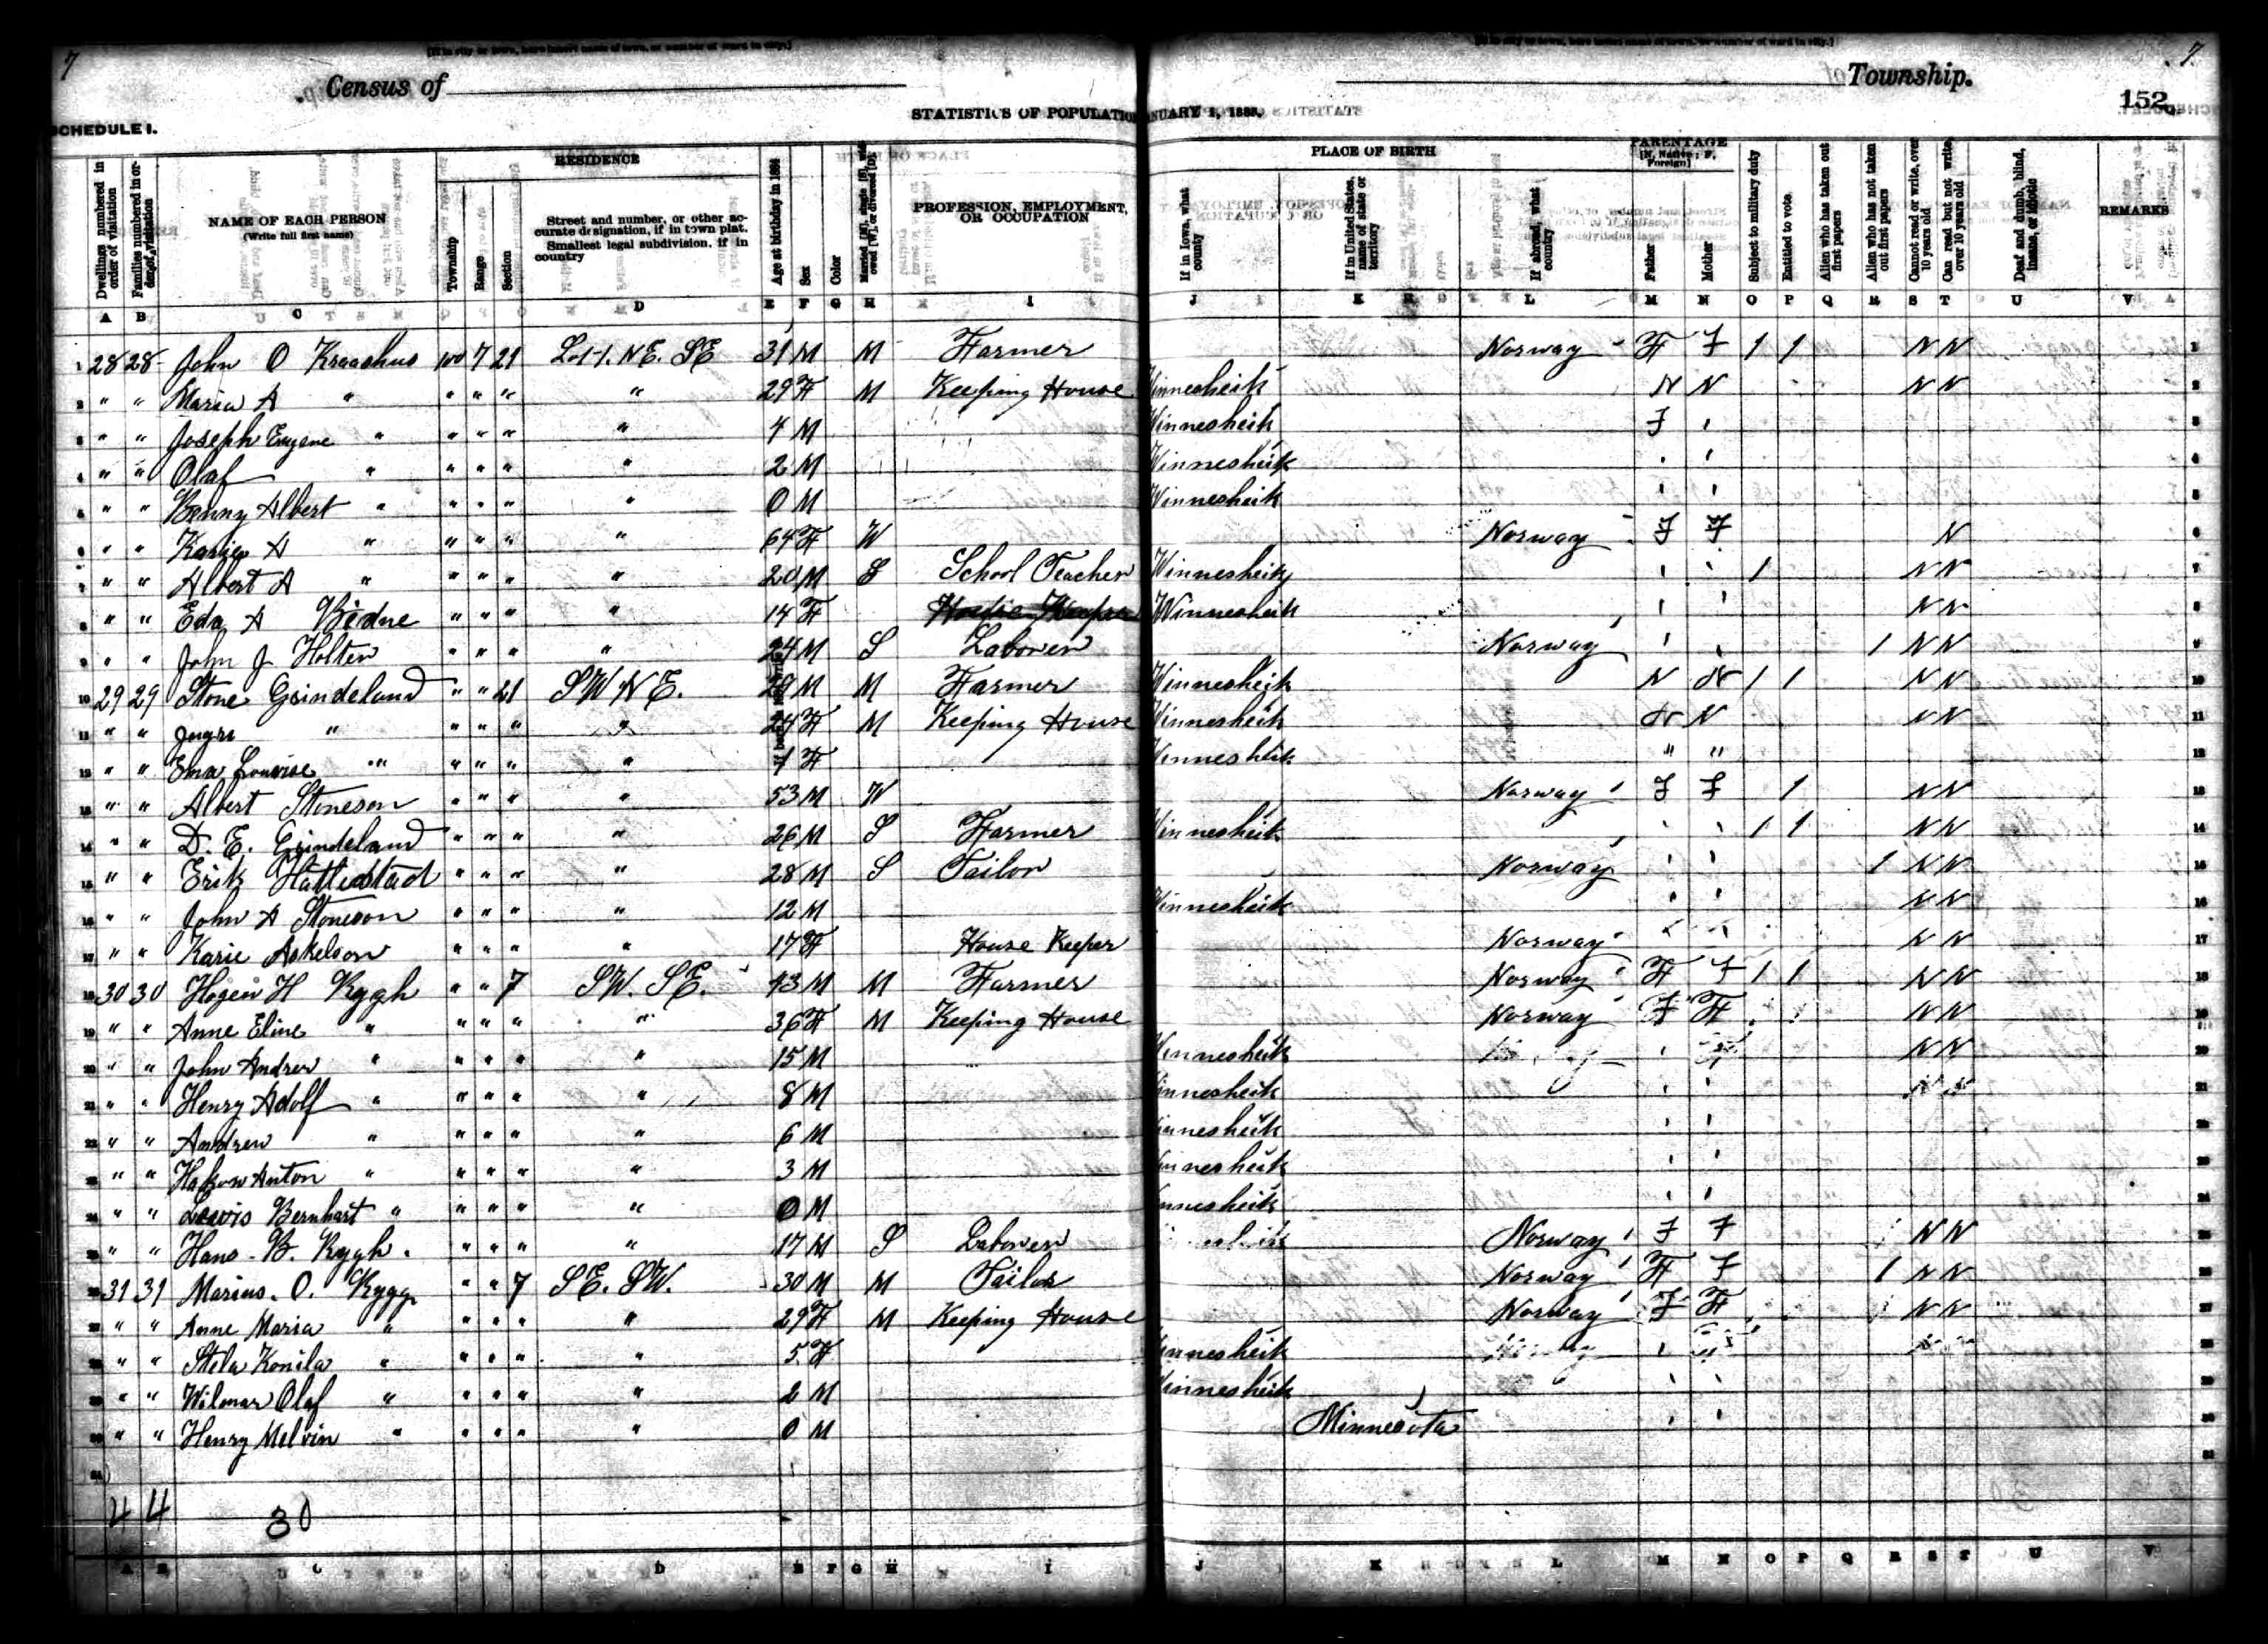 7
7
[If in city or town, here insert name of town, or number of ward in city.]
Census of
Township.
152
SCHEDULE I.
STATISTICS OF POPULATION JANUARY 1, 1885.
Dwellings numbered in order of visitation
Families numbered in order of visitation
NAME OF EACH PERSON
(Write full first name)
RESIDENCE
Township
Range
Section
Street and number, or other accurate designation, if in town plat.
Smallest legal subdivision, if in country
Age at birthday in 1884
Sex
Color
Married [M], single [S], widowed [W], or divorced [D].
PROFESSION, EMPLOYMENT, OR OCCUPATION
PLACE OF BIRTH
If in Iowa, what county
If in United States, name of state or territory
If abroad, what country
PARENTAGE
[N, Native; F, Foreign]
Father
Mother
Subject to military duty
Entitled to vote
Alien who has taken out first papers
Alien who has not taken out first papers
Cannot read or write, over 10 years old
Can read but not write, over 10 years old
Deaf and dumb, blind, insane, or idiotic
REMARKS
A B C D E F G H I J K L M N O P Q R S T U V
1 28 28 John O Kraachus 100 7 21 Lot 1. NE. SE 31 M M Farmer Norway F F 1 1 N N
2 " " Maria A " " " " " 29 F M Keeping House Winnesheik N N N N
3 " " Joseph Eugene " " " " " 4 M Winnesheik F '
4 " " Olaf " " " " " 2 M Winnesheik ' '
5 " " Benny Albert " " " " " 0 M Winnesheik ' '
6 " " Karie A " " " " " 64 F W Norway F F N
7 " " Albert A " " " " " 20 M S School Teacher Winnesheik ' ' 1 N N
8 " " Eda A Bidne " " " " 14 F Winnesheik ' ' N N
9 " " John J Holten " " " " 24 M S Laborer Norway ' ' 1 N N
10 29 29 Stone Grindeland " " 21 SW NE. 29 M M Farmer Winnesheik N N 1 1 N N
11 " " Ingri " " " " " 24 F M Keeping House Winnesheik N N N N
12 " " Ema Louise " " " " " 1 F Winnesheik " "
13 " " Albert Stoneson " " " " 53 M W Norway F F 1 N N
14 " " D. E. Grindeland " " " " 26 M S Farmer Winnesheik ' ' 1 1 N N
15 " " Erik Hattlestad " " " " 28 M S Tailor Norway ' ' 1 N N
16 " " John A Stoneson " " " " 12 M Winnesheik ' ' N N
17 " " Karie Askelson " " " " 17 F House Keeper Norway ' ' N N
18 30 30 Hogen H Rygh " " 7 SW. SE. 43 M M Farmer Norway F F 1 1 N N
19 " " Anne Eline " " " " " 36 F M Keeping House Norway F F N N
20 " " John Andrew " " " " " 15 M Winnesheik ' N N
21 " " Henry Adolf " " " " " 8 M Winnesheik ' '
22 " " Andrew " " " " " 6 M Winnesheik ' '
23 " " Hakon Anton " " " " " 3 M Winnesheik ' '
24 " " Lewis Bernhart " " " " " 0 M Winnesheik ' '
25 " " Hans B. Rygh " " " " 17 M S Laborer Norway F F N N
26 31 31 Marius O. Rygg " " 7 SE. SW. 30 M M Tailor Norway F F 1 N N
27 " " Anne Maria " " " " " 29 F M Keeping House Norway F F N N
28 " " Stela Konila " " " " " 5 F Winnesheik '
29 " " Wilmar Olaf " " " " " 2 M Winnesheik ' '
30 " " Henry Melvin " " " " " 0 M Minnesota ' '
31
4 4 30
A B C D E F G H I J K L M N O P Q R S T U V